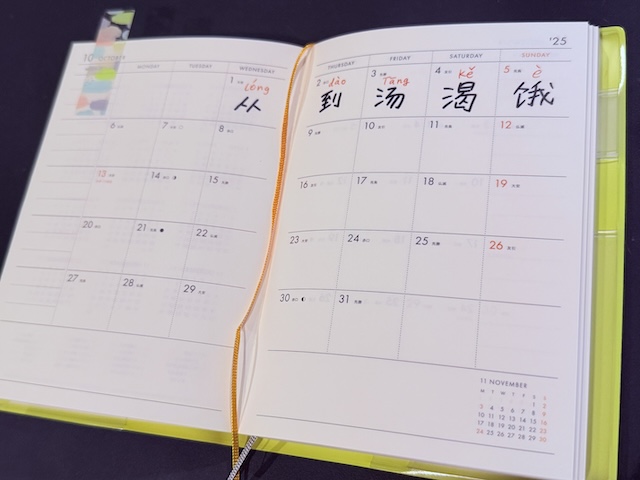 10 OCTOBER
MONDAY TUESDAY WEDNESDAY
1 lóng
从
6 7 8
13 14 15
20 21 22
27 28 29
'25
THURSDAY FRIDAY SATURDAY SUNDAY
2 dào 3 Tāng 4 kě 5 è
到 汤 渴 饿
9 10 11 12
16 17 18 19
23 24 25 26
30 31
11 NOVEMBER
M T W T F S S
1 2
3 4 5 6 7 8 9
10 11 12 13 14 15 16
17 18 19 20 21 22 23
24 25 26 27 28 29 30